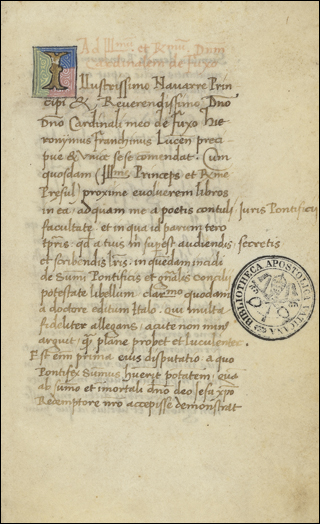 Ad Ill.mum et R.mum Dnm
Cardinalem de Fuxo
Illustrissimo Navarre Prin
cipi & Reverendissimo Dno
Dno Cardinali meo de Fuxo Hie
ronymus Franchinus Lucen preci
pue & unice sese comendat. Cum
quosdam (Ill.me Princeps et R.me
Presul) proxime evolverem libros
in ea, ad quam me a poetis contuli Juris Pontificii
facultate et in qua id parum tero
tpris. qd a tuis mi supest audiendis secretis
et scribendis lris. in quedam incidi
de Sumi Pontificis et gnalis Concilii
potestate libellum clar.mo quodam
a doctore editum Italo. qui multa
fideliter allegans, acute non min9
arguit. q̃ plane propet et luculenter.
Est eim prima eius disputatio a quo
Pontifex Sumus huerit potatem, eua
ab sumo et imortali dno deo Jesu xpo
Redemptore nro accepisse demonstrat
BIBLIOTHECA APOSTOLICA VATICANA